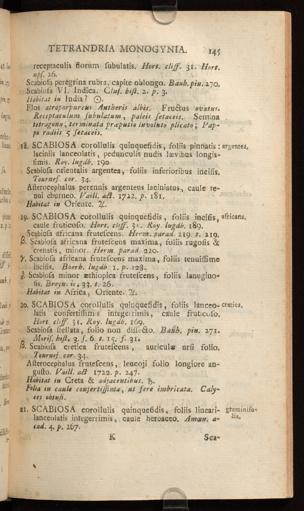 TETRANDRIA MONOGYNIA. 145
receptaculis florum subulatis. Hort. cliff. 31. Hort.
upf. 26.
Scabiosa peregrina rubra, capite oblongo. Bauh. pin. 270.
Scabiosa VI. Indica. Cluf. hist. 2. p. 3.
Habitat in India? ☉.
Flos atropurpureus Antheris albis. Fructus ovatus.
Receptaculum subulatum, paleis setaceis. Semina
tetragona, terminata praputio involuto plicato; Pap-
pi radiis 5 setaceis.
18. SCABIOSA corollulis quinquefidis, foliis pinnatis : argentea.
laciniis lanceolatis, pedunculis nudis lævibus longis-
simis. Roy. lugdb. 190.
Scabiosa orientalis argentea, foliis inferioribus incisis.
Tournef. cor. 34.
Asterocephalus perennis argenteus laciniatus, caule te-
nui eburneo. Vaill. act. 1722. p. 181.
Habitat in Oriente. ♃.
19. SCABIOSA corollulis quinquefidis, foliis incisis, africana.
caule fruticoso. Hort. cliff. 31. Roy. lugdb. 189.
Scabiosa africana frutescens. Herm. parad. 219. t. 219.
β. Scabiosa africana frutescens maxima, foliis rugosis &
crenatis, minor. Herm. parad. 220.
γ. Scabiosa africana frutescens maxima, foliis tenuissime
incisis. Boerh. lugdb. 1. p. 128.
Scabiosa minor æthiopica frutescens, foliis lanugino-
sis. Breyn. ic. 23. t. 26.
Habitat in Africa, Oriente. ♃.
20. SCABIOSA corollulis quinquefidis, foliis lanceo- cretica.
latis confertissimis integerrimis, caule fruticoso.
Hort. cliff. 31. Roy. lugdb. 189.
Scabiosa stellata, folio non dissecto. Bauh. pin. 271.
Moris. hist. 3. f. 6. t. 15. f. 31.
β. Scabiosa cretica frutescens, auriculæ ursi folio.
Tournef. cor. 34.
Asterocephalus frutescens, leucoji folio longiore an-
gusto. Vaill. act. 1722. p. 247.
Habitat in Creta & adjacentibus. ♄.
Folia in caule confertissima, ut fere imbricata. Caly-
ces obtusi.
21. SCABIOSA corollulis quinquefidis, foliis lineari- graminifo-
lanceolatis integerrimis, caule herbaceo. Amœn. a- lia.
cad. 4. p. 267.
K Sca-